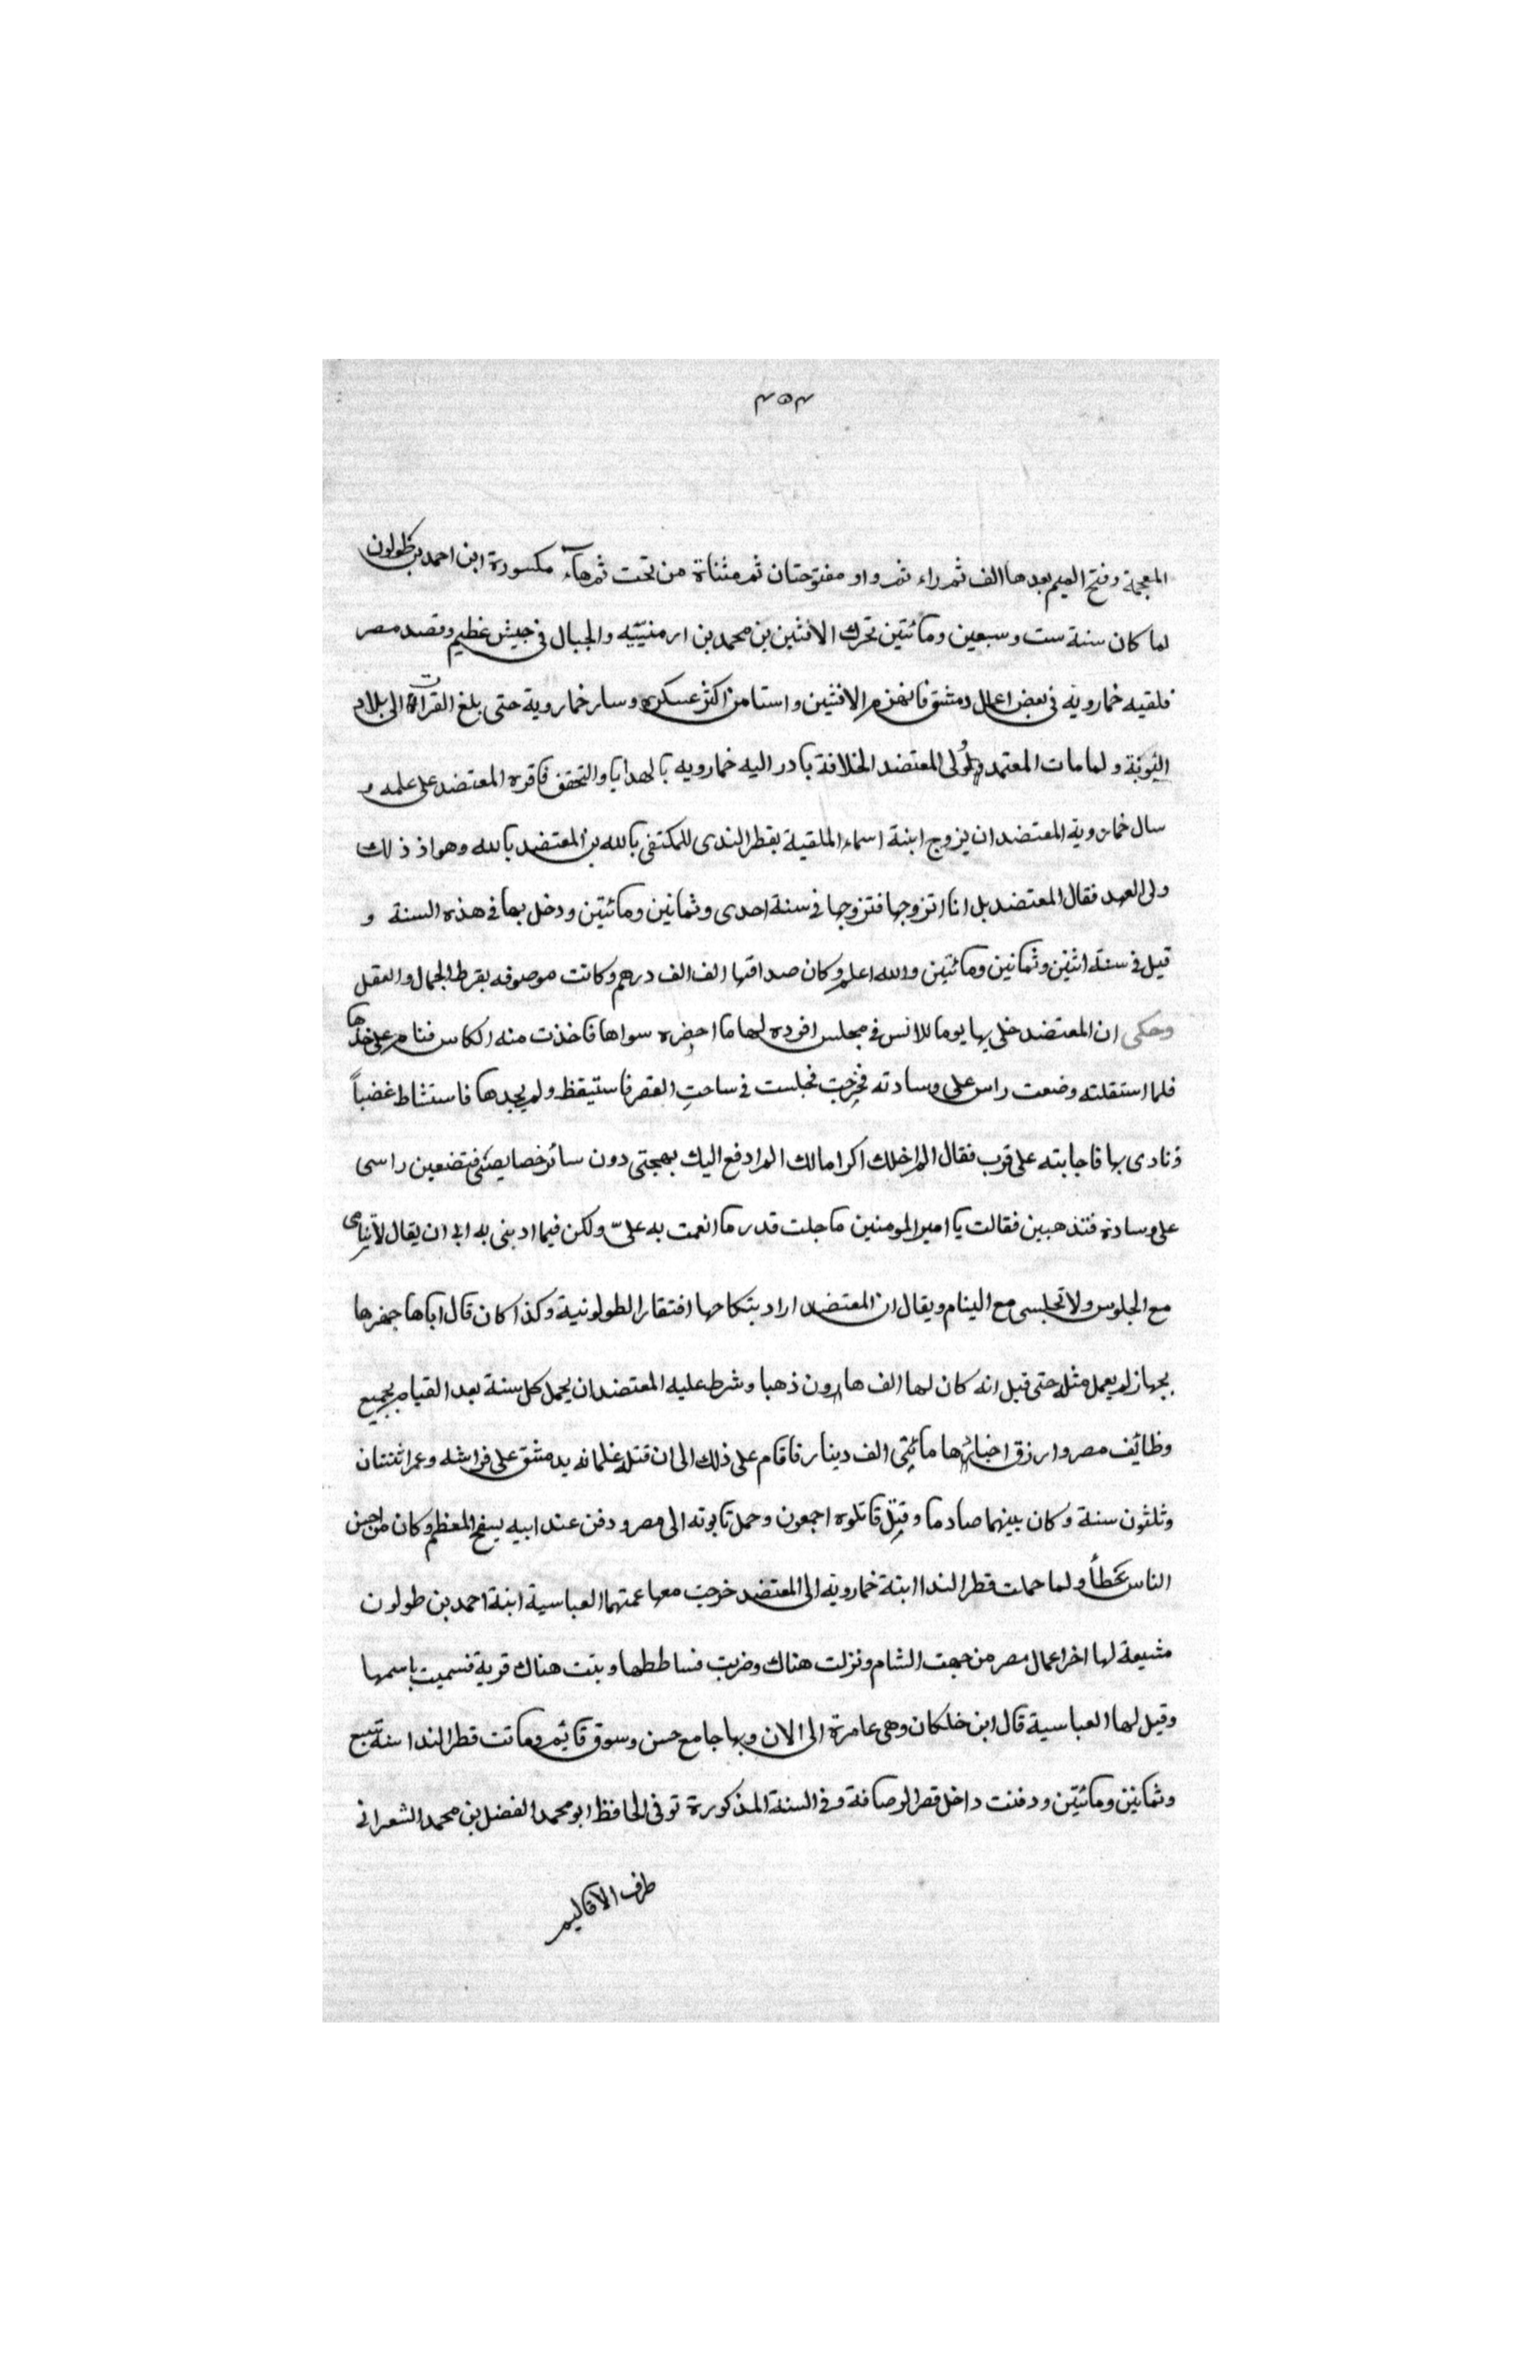 ٣٥٣
المعجمة وفتح الميم بعدها الف ثم راء ثم واو مفتوحتان ثم مثناة من تحت ثم هآء مكسورة ابن احمد بن طولون
لما كان سنة ست وسبعين ومائتين تحرك الافشين بن محمد بن ارمنييه والجبال فى جيش عظيم وقصد مصر
فلقيه خمارويه فى بعض اعمال دمشق فانهزم الافشين واستامن اكثر عسكره وسار خماروية حتى بلغ الفرات الى بلاد
النوبة ولما مات المعتمد وولى المعتضد الخلافة بادر اليه خمارويه بالهدايا والتحف فاقره المعتضد على علمه و
سال خماروية المعتضد ان يزوج ابنة اسماء الملقية بقطر الندى للمكتفى بالله بن المعتضد بالله وهو اذ ذلك
ولى العهد فقال المعتضد بل انا اتزوجها فتزوجها فى سنة احدى وثمانين ومائتين ودخل بها فى هذه السنة و
قيل فى سنة اثنين وثمانين ومائتين والله اعلم وكان صداقها الف الف درهم وكانت موصوفه بفرط الجمال والعقل
وحكى ان المعتضد خلى بها يوما للانس فى مجلس افرده لها ما احضره سواها فاخذت منه الكاس فنام على خذها
فلما استقلته وضعت راس على وسادته فخرجت فجلست فى ساحت القصر فاستيقظ ولم يجدها فاستشاط غضباً
ونادى بها فاجابته على قرب فقال الم اخلك اكراما لك الم ادفع اليك بهجتى دون سائر خصايصى فتضعين راسى
على وسادة فتذهبين فقالت يا امير المومنين ما جلت قدر ما انعمت به علىّ ولكن فيما ادبنى به ابى ان يقال لا تنامى
مع الجلوس ولا تجلسى مع الينام ويقال ان المعتضد اراد بنكاحها افتقار الطولونية وكذا كان قال اباها جهزها
بجهاز لم يعمل مثله حتى قيل انه كان لها الف هارون ذهبا وشرط عليه المعتضد ان يحمل كل سنة بعد القيام بجميع
وظائف مصر وارزق اخبارها مائتى الف دينار فاقام على ذلك الى ان قتله غلمانه بدمشق على فراشه وعمر اثنتان
وثلثون سنة وكان بينهما صادما وقتل قاتلوه اجمعون وحمل تابوته الى مصر ودفن عند ابيه بسفح المعظم وكان من احسن
الناس خطأ ولما حملت قطر الندا ابنة خمارويه الى المعتضد خرجت معها عمتهما العباسية ابنة احمد بن طولون
مشيعة لها اخر اعمال مصر من جهت الشام ونزلت هناك وضربت فساططها وبنت هناك قرية فسميت باسمها
وقيل لها العباسية قال ابن خلكان وهى عامرة الى الان وبها جامع حسن وسوق قائم وماتت قطر الندا سنة سبع
وثمانين ومائتين ودفنت داخل قصر الرصافة وفى السنة المذكورة توفى الحافظ ابو محمد الفضل بن محمد الشعرانى
طرف الاقاليم